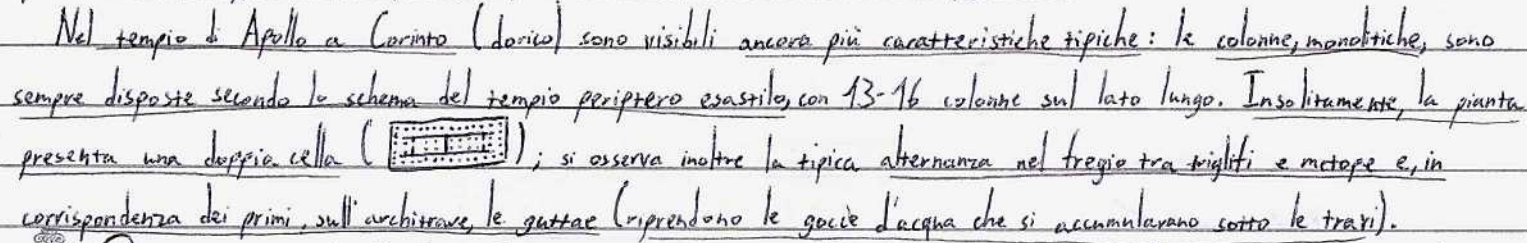 Nel tempio di Apollo a Corinto (dorico) sono visibili ancora più caratteristiche tipiche: le colonne, monolitiche, sono
sempre disposte secondo lo schema del tempio periptero esastilo, con 13-16 colonne sul lato lungo. Insolitamente, la pianta
presenta una doppia cella ( ); si osserva inoltre la tipica alternanza nel fregio tra triglifi e metope e, in
corrispondenza dei primi, sull'architrave, le guttae (riprendono le gocce d'acqua che si accumulavano sotto le travi).